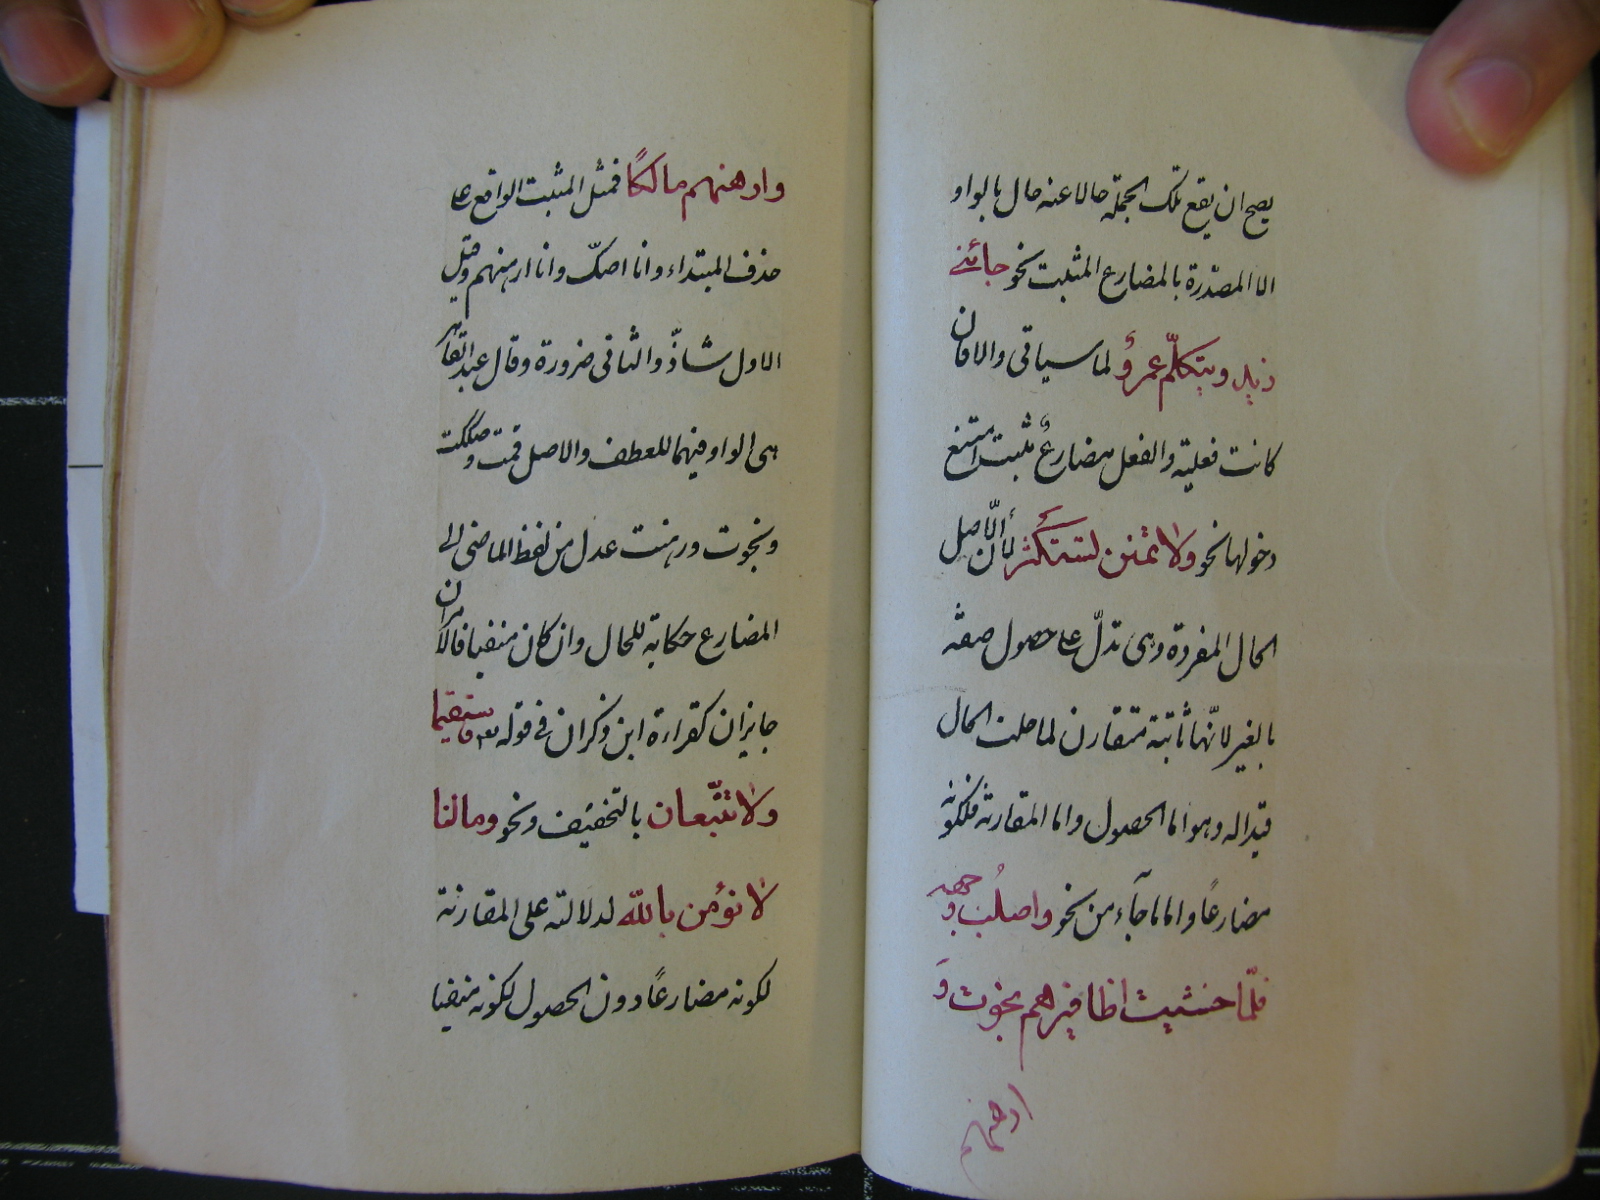 يصح ان يقع تلك الجملة حالا عنه حال بالواو
الا المصدرة بالمضارع المثبت نحو جائنى
زيد ويتكلّم عمرو لما سياتى والا فان
كانت فعلية والفعل مضارعٌ مثبت امتنع
دخولها نحو ولا تمنن تستكثر لأن الاصل
الحال المفردة وهى تدلّ على حصول صفة
بالغير لانّها ثابتة متقارن لما جعلت الحال
قيدا له وهو اما الحصول واما المقارنة فلكونه
مضارعًا واما ما جآء من نحو واصلُب وجهه
فلمّا خشيت اظافيرهم نجوت وَ
ارهنهم
وارهنهم مالكًا فمثل المثبت الواقع على
حذف المبتداء وانا اصكّ وانا ارهنهم وقيل
الاول شاذّ والثانى ضرورة وقال عبد القاهر
هى الواو فيهما للعطف والاصل قمت وصككت
ونجوت ورهنت عدل من لفظ الماضى الى
المضارع حكاية للحال وان كان منفيا فالامران
جايزان كقراءة ابن ذكران فى قوله تعـ فاستقيما
ولا تتّبعان بالتخفيف ونحو ومالنا
لا نؤمن بالله لدلالته على المقارنة
لكونه مضارعًا دون الحصول لكونه منفيا